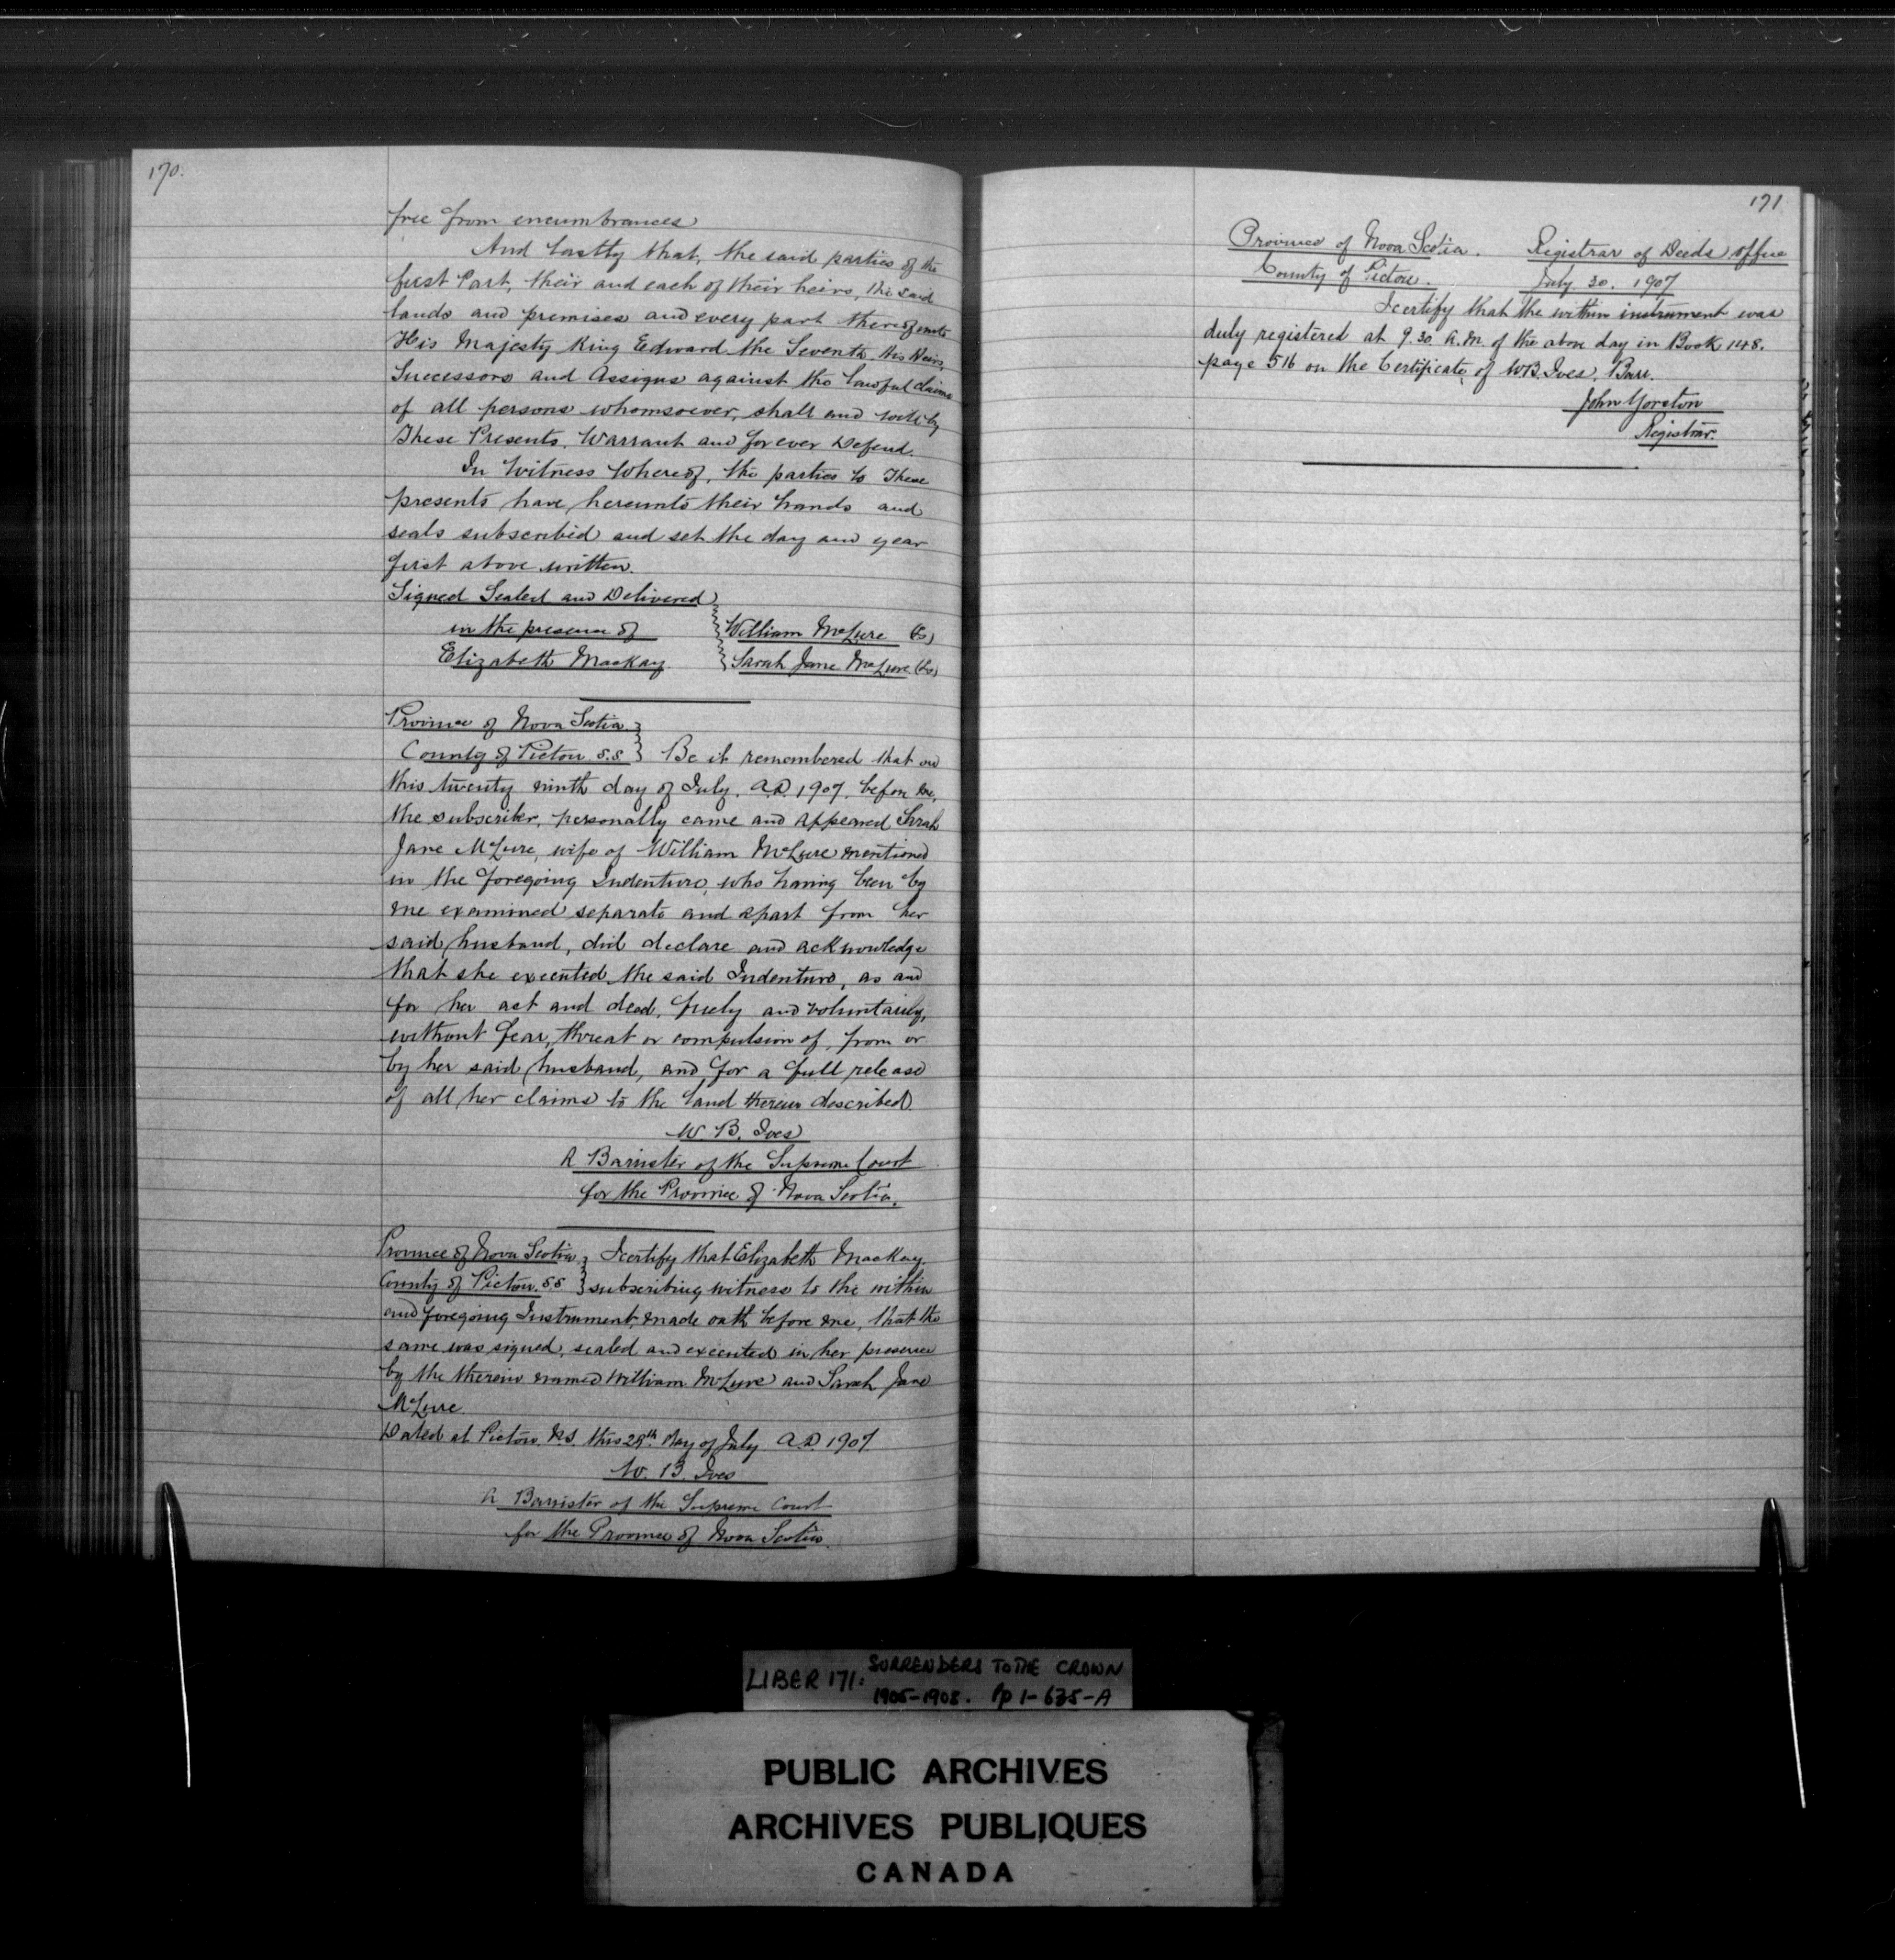 170.
free from encumbrances
And lastly that, the said parties of the
first Part, their and each of their heirs, the said
lands and premises and every part thereof unto
His Majesty King Edward the Seventh, His Heirs,
Successors and Assigns against the lawful claims
of all persons whomsoever, shall and will by
These Presents. Warrant and for ever Defend.
In Witness Whereof, the parties to These
presents have hereunto their hands and
seals subscribed and set the day and year
first above written.
Signed Sealed and Delivered
in the presence of William McLure (LS)
Elizabeth MacKay. Sarah Jane McLure (LS)
Province of Nova Scotia
County of Pictou S.S. Be it remembered that on
this twenty ninth day of July. A.D. 1907. before me,
the subscriber, personally came and appeared Sarah
Jane McLure, wife of William McLure mentioned
in the foregoing Indenture, who having been by
me examined separate and apart from her
said husband, did declare and acknowledge
that she executed the said Indenture, as and
for her act and deed, freely and voluntarily,
without fear, threat or compulsion of, from or
by her said husband, and for a full release
of all her claims to the land therein described.
W. B. Ives
A Barrister of the Supreme Court
for the Province of Nova Scotia.
Province of Nova Scotia I certify that Elizabeth MacKay
County of Pictou. S.S subscribing witness to the within
and foregoing Instrument, made oath before me, that the
same was signed, sealed and executed in her presence
by the therein named William McLure and Sarah Jane
McLure
Dated at Pictou. N.S. this 29th day of July A.D. 1907
W. B. Ives
A Barrister of the Supreme Court
for the Province of Nova Scotia.
171
Province of Nova Scotia. Registrar of Deeds office
County of Pictou. July 30. 1907
I certify that the within instrument was
duly registered at 9.30. A.M. of the above day in Book 148.
page 516 on the Certificate of W.B. Ives, Barr.
John Yorston
Registrar.
LIBER 171: SURRENDERS TO THE CROWN
1905-1908. Pp 1-635-A
PUBLIC ARCHIVES
ARCHIVES PUBLIQUES
CANADA